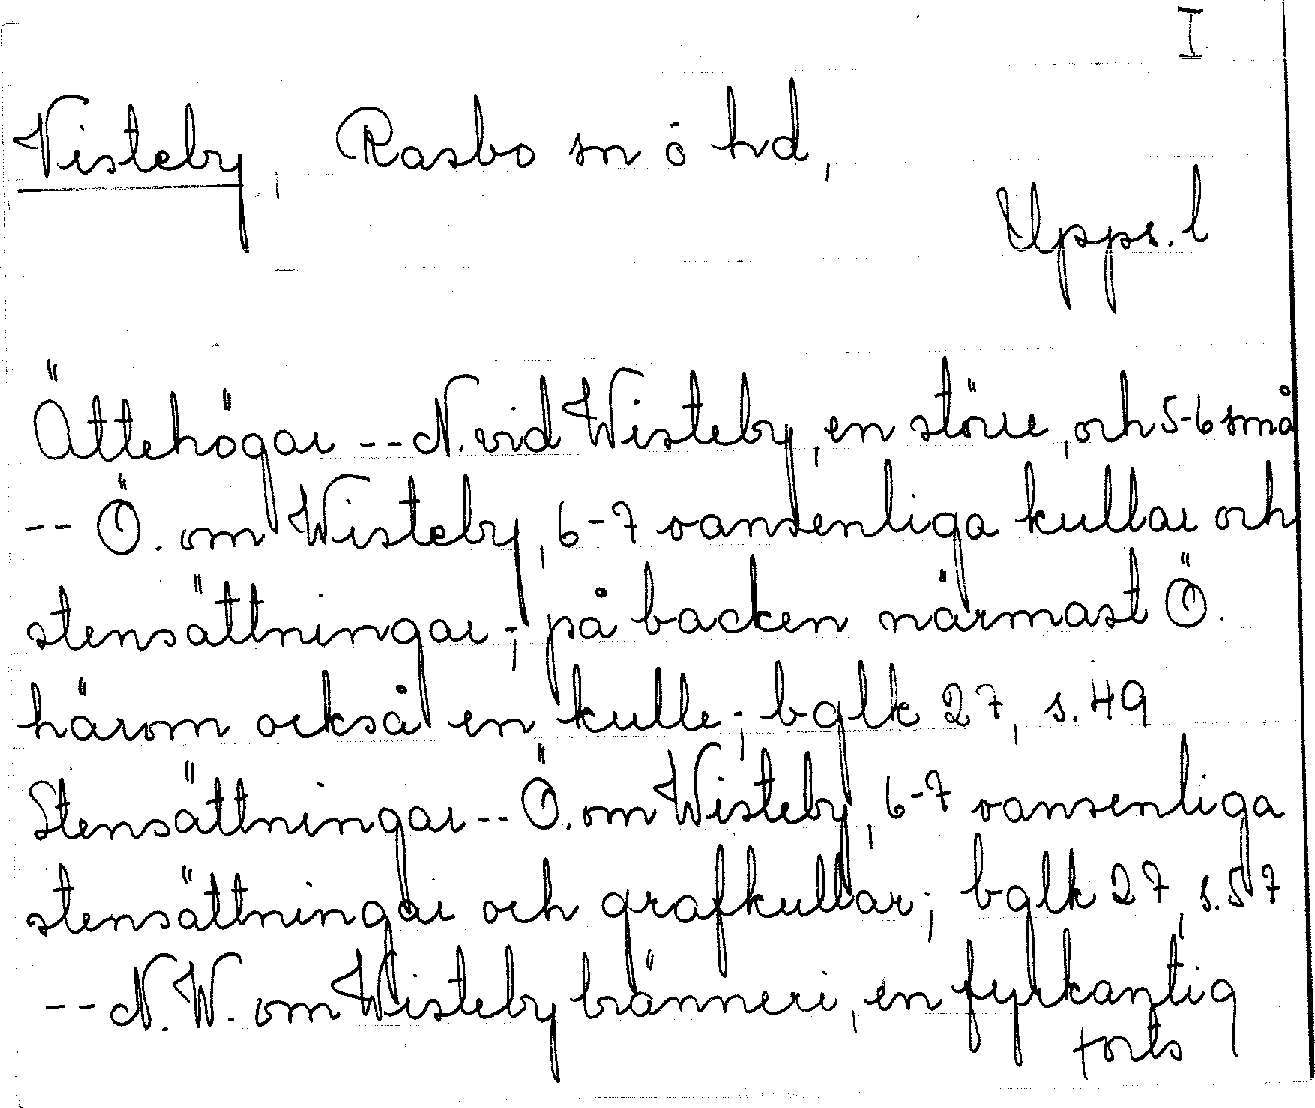 I
Visteby, Rasbo sn ö hd,
Upps. l
Ättehögar -- N. vid Wisteby, en större, och 5-6 små
-- Ö. om Wisteby, 6-7 vansenliga kullar och
stensättningar; på backen närmast Ö.
härom också en kulle; bglk 27, s. 49
Stensättningar -- Ö. om Wisteby, 6-7 vansenliga
stensättningar och grafkullar; bglk 27, s. 57
-- N.W. om Wisteby bränneri, en fyrkantig
forts